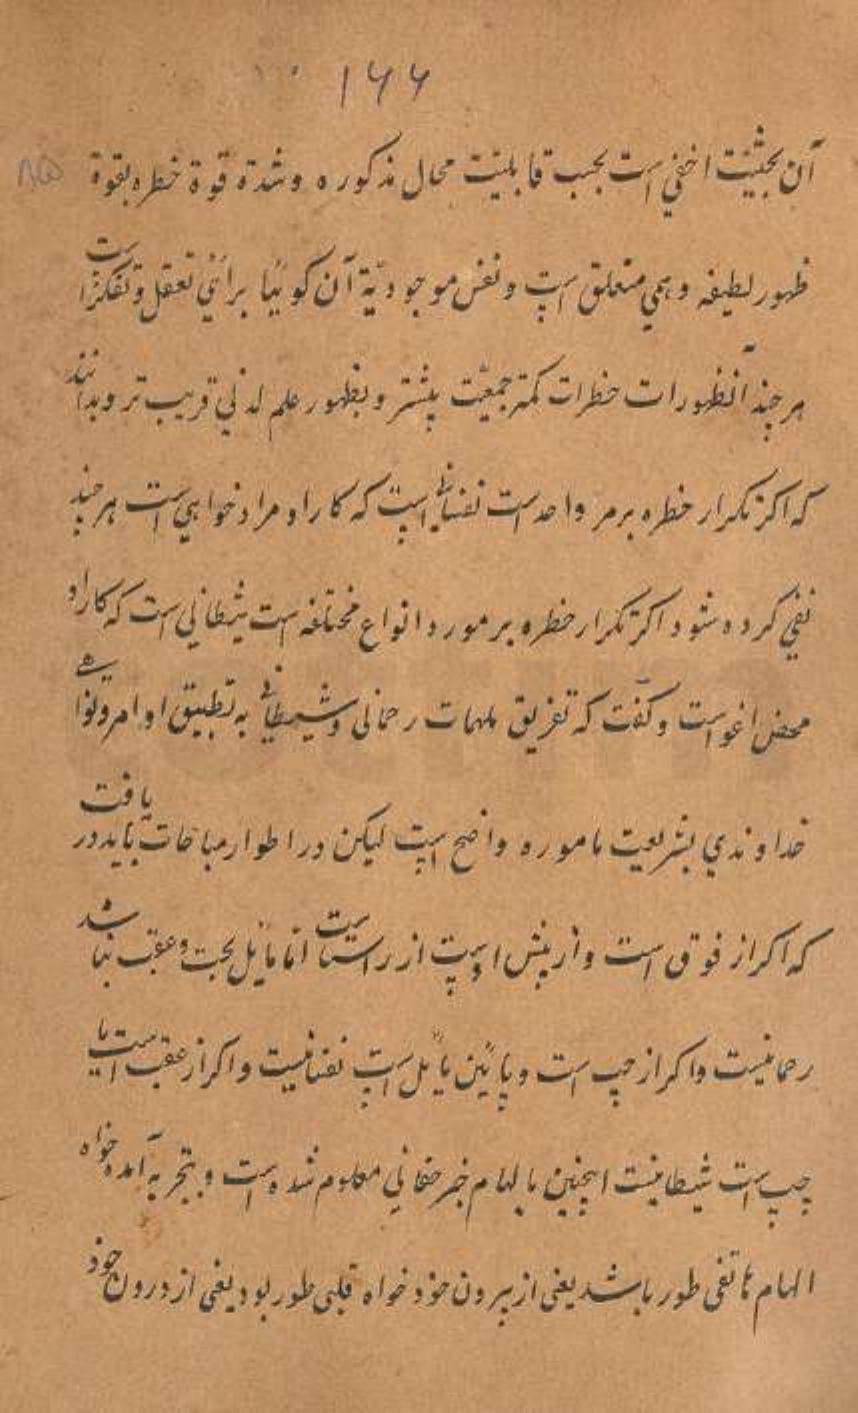 ۱۶۶
آن بحیثیت اخفی است بحسب قابلیت محال مذکوره و شدة قوة خطره بقوة
ظهور لطیفه وهمی متعلق است و نفس موجودیّة آن گوئیا برای تعقل و تفکر است
هر چند آنظهورات خطرات کمتر جمعیّت بیشتر و بظهور علم لدنی قریب تر و بدانند
که اکر تکرار خطره بر مر واحد است نفسانی است که کار او مراد خواهی است هر چند
نفی کرده شود اکر تکرار خطره بر مورد انواع مختلفه است شیطانی است که کار او
محض اغواست و کفت که تفریق ملهمات رحمانی و شیطانی به تطبیق اوامر و نواهی
خداوندی بشریعت ماموره واضح است لیکن در اطوار مباحات باید دریافت
که اکر از فوق است و از پیش است و از راست است اما مایل بجهت عقب نباشد
رحمانیست و اکر از چپ است و پائین مایل است نفسانیست و اکر از عقب است یا
چپ است شیطانیست اینچنین بالهام خبر حقانی معلوم شده است و بتجربه آمده خواه
الهام هاتفی طور باشد یعنی از بیرون خود خواه قلبی طور بود یعنی از درون خود